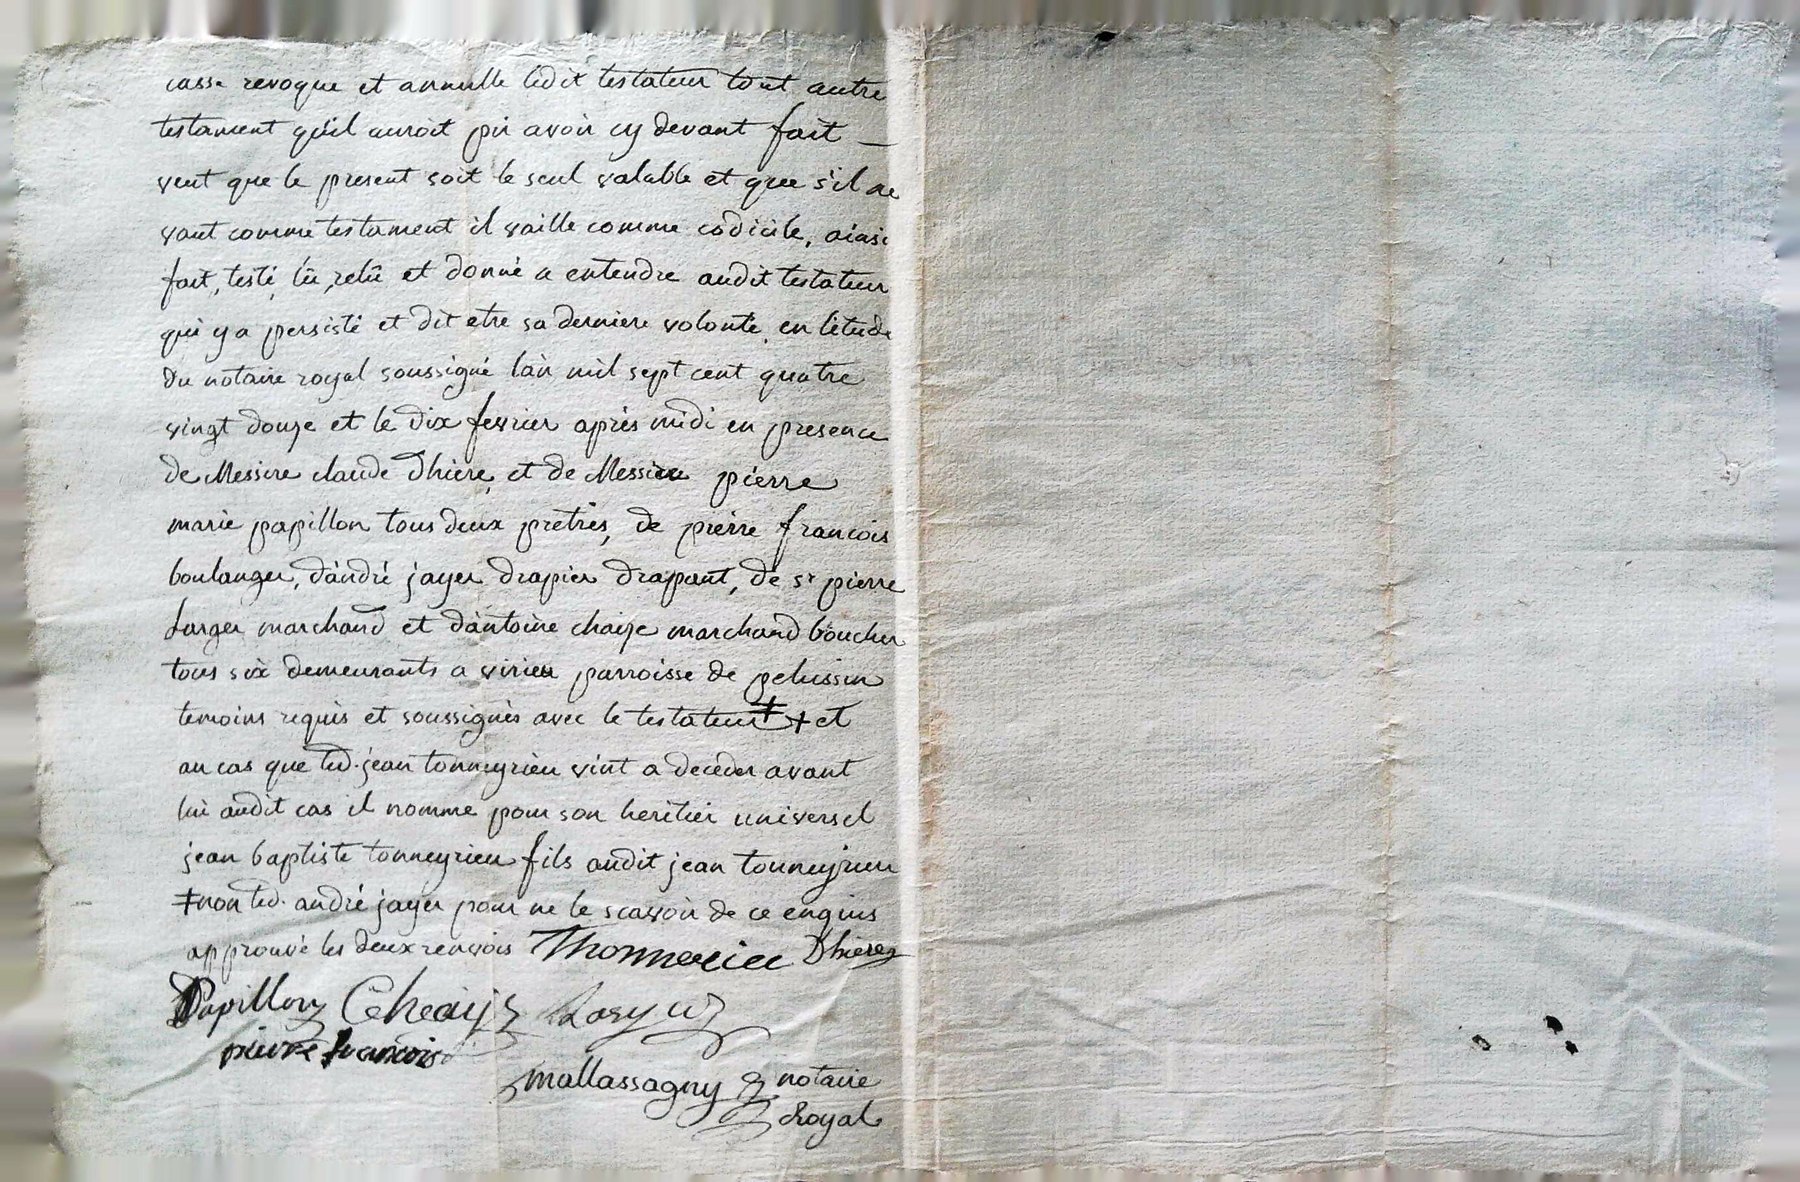 casse revoque et annulle ledit testateur tout autre
testament qu'il auroit pû avoir cy devant fait _
veut que le present soit le seul valable et que s'il ne
vaut comme testament il vaille comme codicile, ainsi
fait, testé, lû, relû et donné a entendre audit testateur
qui y a persisté et dit etre sa derniere volonté. en l'etude
du notaire royal soussigné l'an mil sept cent quatre
vingt douze et le dix fevrier après midi en presence
de Messire claude Dhiere, et de Messire pierre
marie papillon tous deux pretres, de pierre françois
boulanger, d'andré jayer drapier drapant, de sr pierre
Larger marchand et d'antoine chaize marchand boucher
tous six demeurants a virieu parroisse de pelussin
temoins requis et soussignés avec le testateur ‡ + et
au cas que led. jean tonneyrieu vint a deceder avant
lui audit cas il nomme pour son heritier universel
jean baptiste tonneyrieu fils audit jean tonneyrieu
‡ non led. andré jayer pour ne le scavoir de ce enquis
approuvé les deux renvois Thonnerieu Dhieres
Papillon Cheaije
pierre francois
mallassagny notaire
Royal